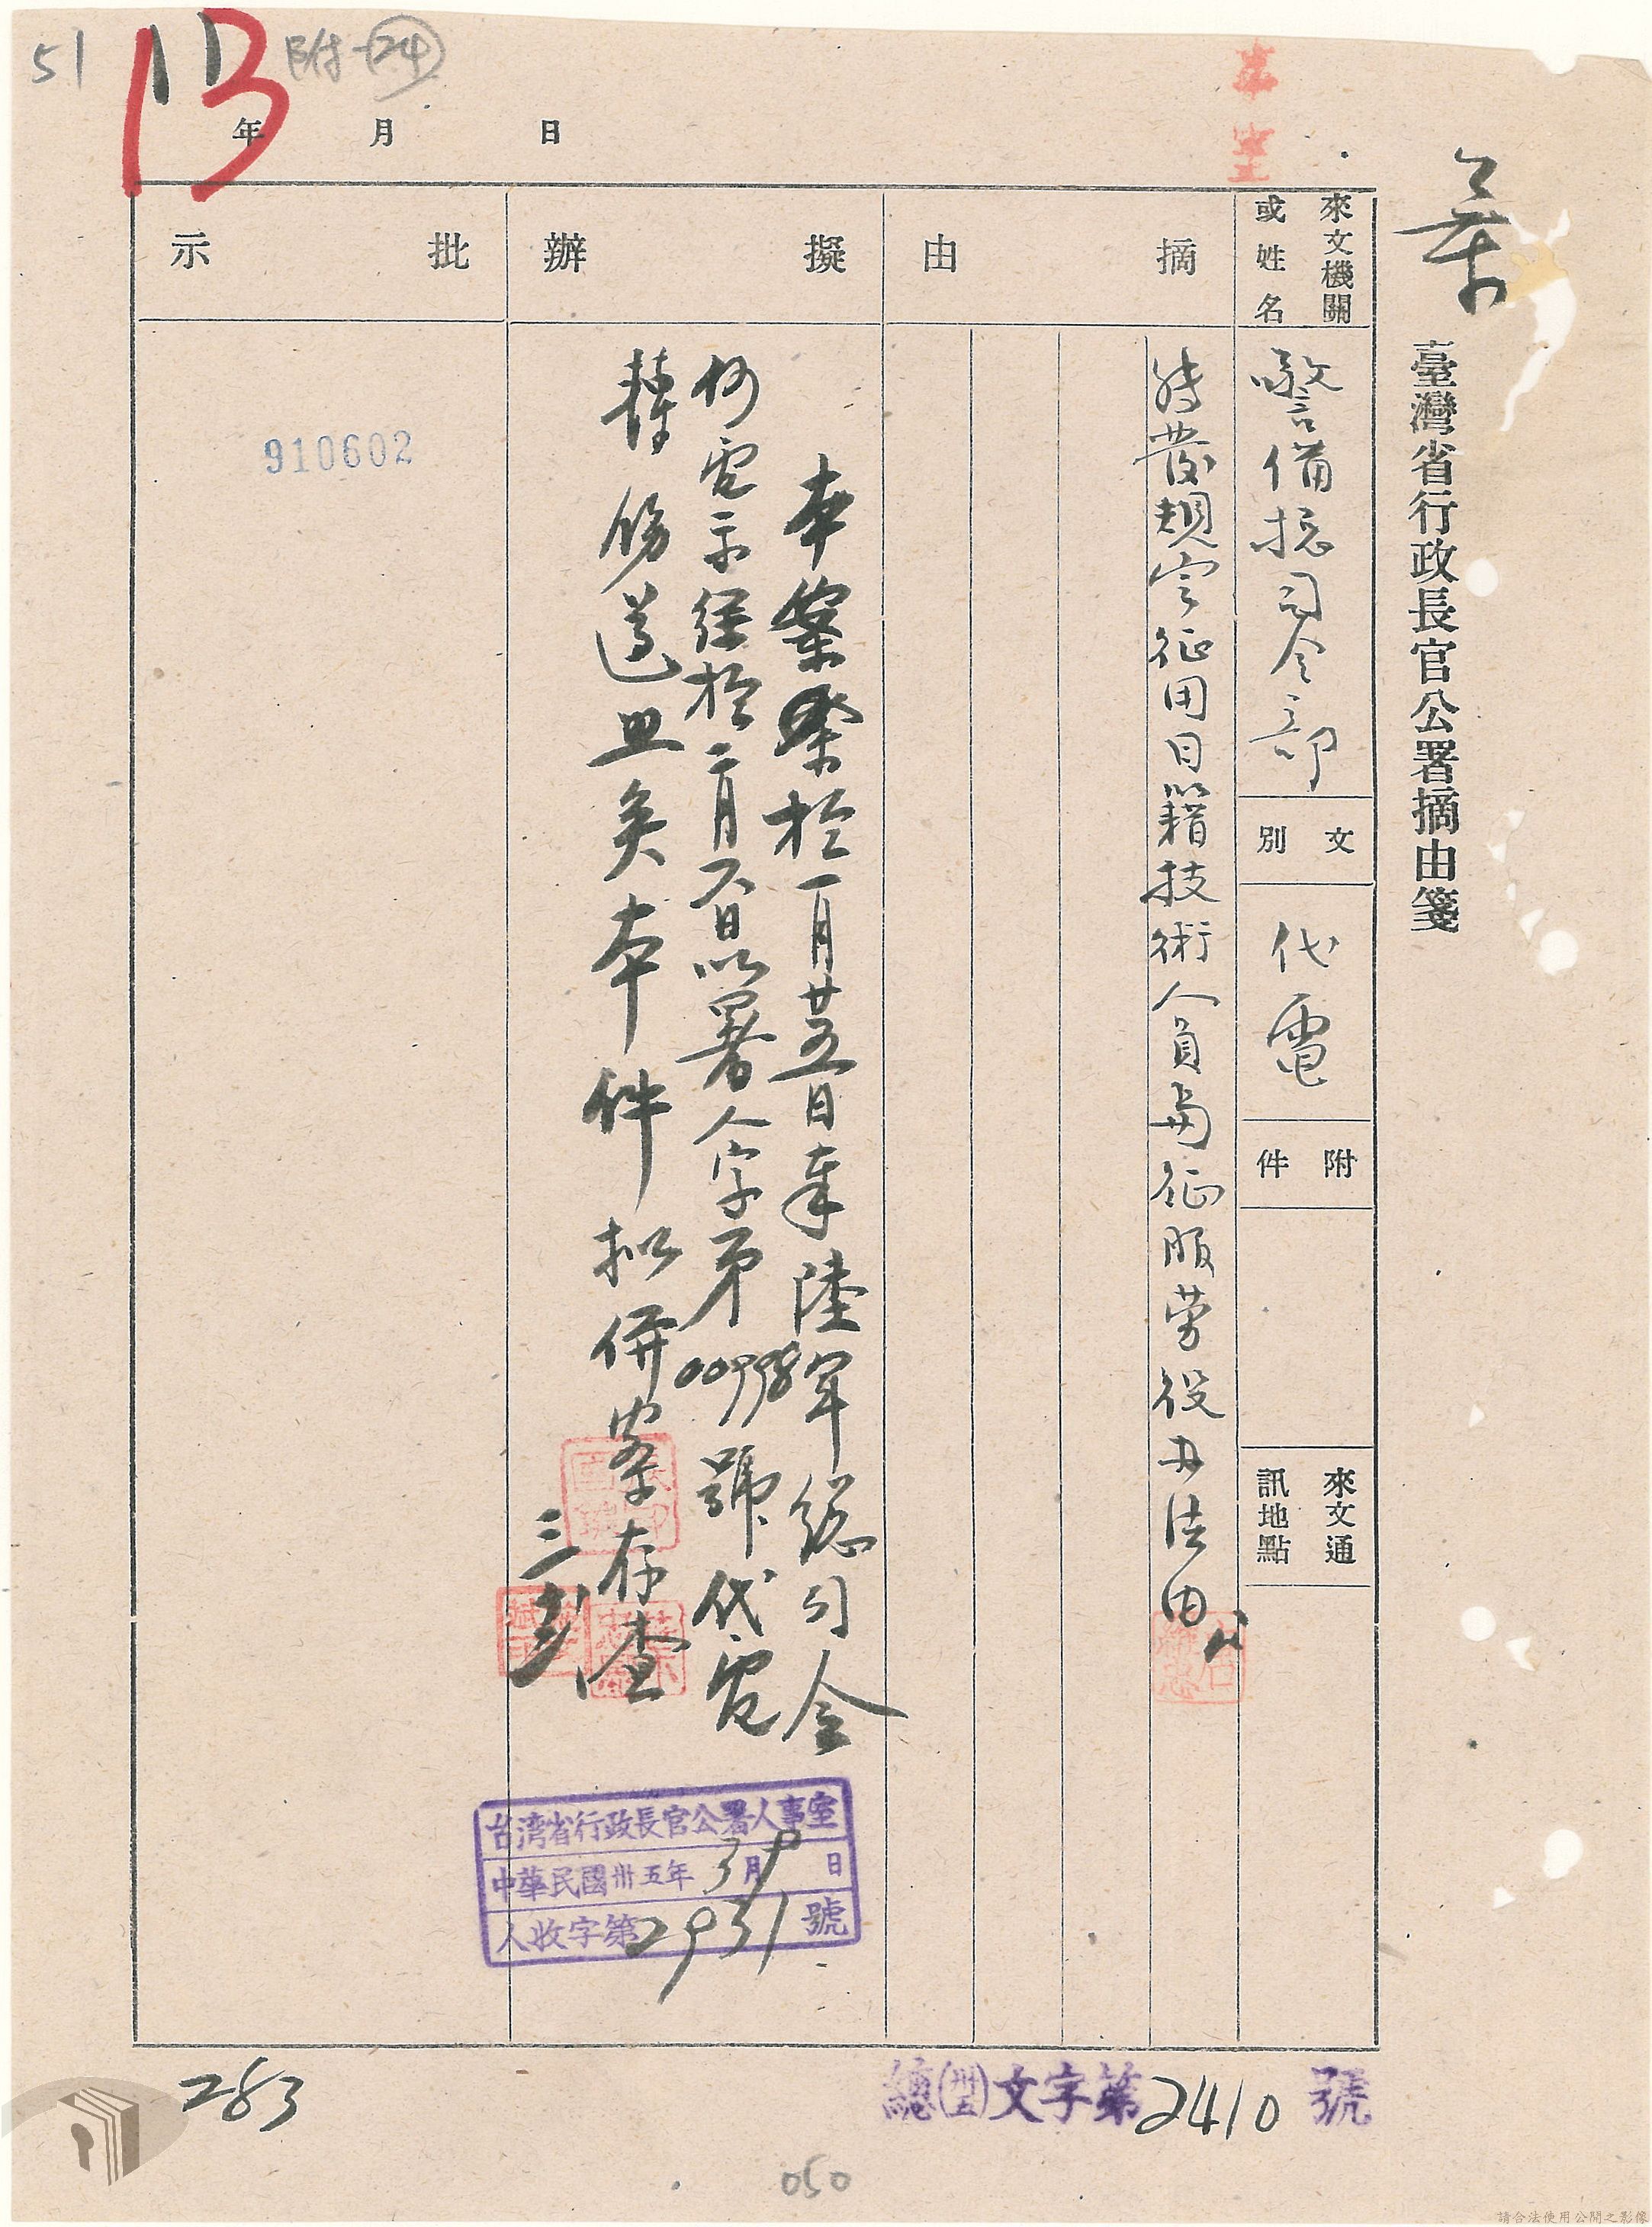 臺灣省行政長官公署摘由箋
來文機關
或姓名
警備總司令部
文別
代電
附件
來文通
訊地點
摘由
轉發規定征用日籍技術人員與征服勞役办法由
擬辦
本案業於一月廿五日奉陸軍総司令
何電示經於二月六日以署人字第00998號代電
轉飭遵照矣本件拟併案存查
批示
年 月 日
13
附-(24)
51
910602
台湾省行政長官公署人事室
中華民國卅五年3月9日
人收字第2931號
總(卅五)文字第2410號
283
050
請合法使用公開之影像